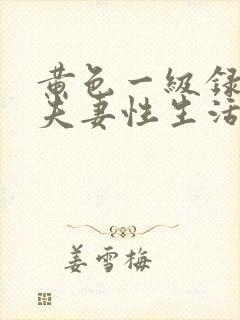 黄色一级録
夫妻性生活
姜雪梅